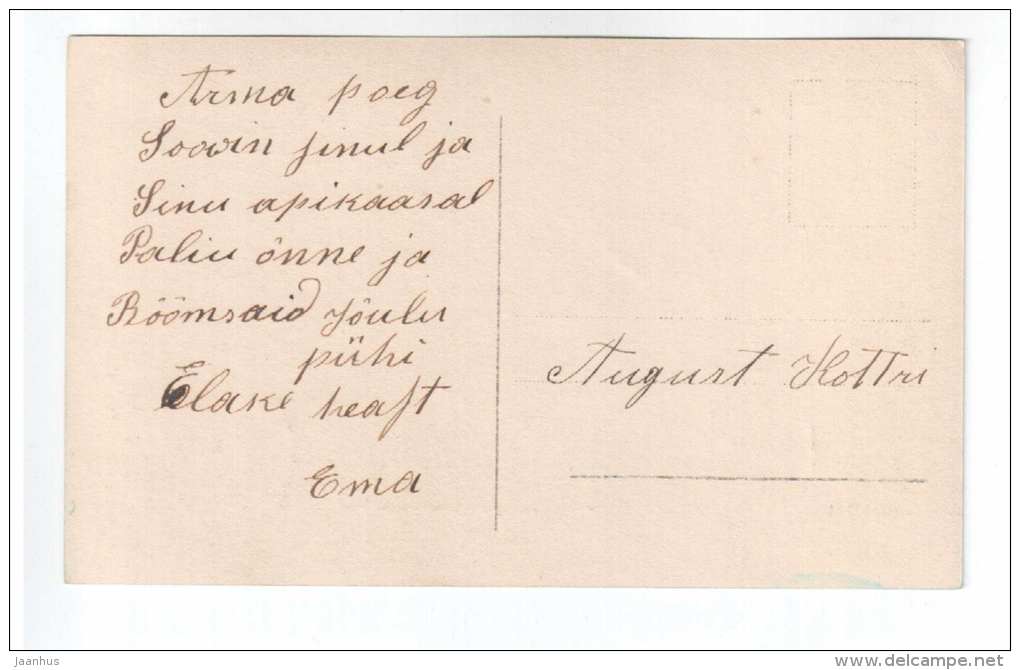 Arma poeg
Soowin sinul ja
Sinu apikaasal
Paliu õnne ja
Rõõmsaid Jõulu
pühi
Elake heast
Ema
August Kottri
Jaanhus
delcampe.net